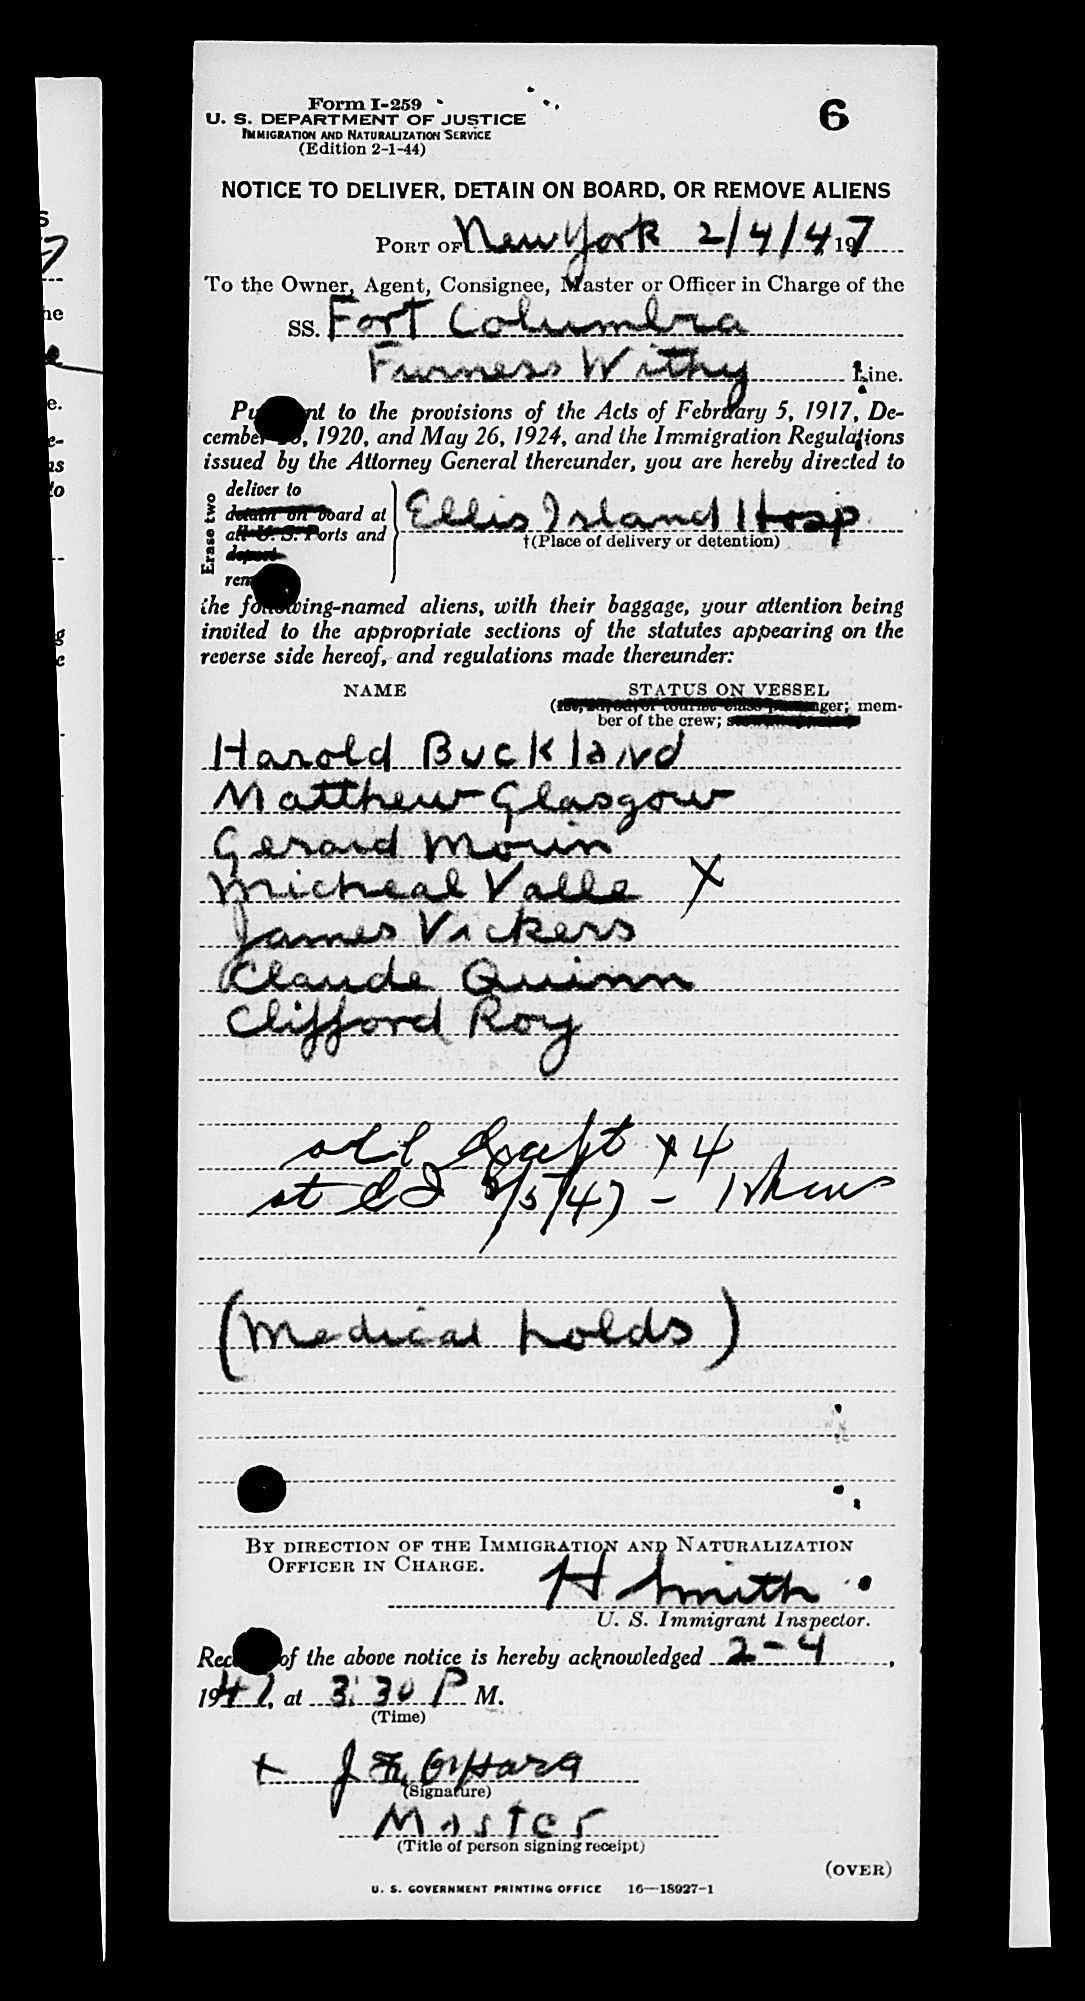 Form I-259
U. S. DEPARTMENT OF JUSTICE
IMMIGRATION AND NATURALIZATION SERVICE
(Edition 2-1-44)
6
NOTICE TO DELIVER, DETAIN ON BOARD, OR REMOVE ALIENS
PORT OF New York 2/4/47
To the Owner, Agent, Consignee, Master or Officer in Charge of the
SS. Fort Columbia
Furness Withy Line.
to the provisions of the Acts of February 5, 1917, De-
cember 1920, and May 26, 1924, and the Immigration Regulations
issued by the Attorney General thereunder, you are hereby directed to
Erase two
deliver to
detain on board at
all U. S. Ports and
deport
Ellis Island Hosp
†(Place of delivery or detention)
the following-named aliens, with their baggage, your attention being
invited to the appropriate sections of the statutes appearing on the
reverse side hereof, and regulations made thereunder:
NAME STATUS ON VESSEL
(1st, 2d, 3d, or tourist class passenger; mem-
ber of the crew;
Harold Buckland
Matthew Glasgow
Gerard Morin
Micheal Valle X
James Vickers
Claude Quinn
Clifford Roy
all x 4
at EI /5/47 -
(Medical holds)
BY DIRECTION OF THE IMMIGRATION AND NATURALIZATION
OFFICER IN CHARGE.
H Smith
U. S. Immigrant Inspector.
of the above notice is hereby acknowledged 2-4,
1947, at 3:30 P M.
(Time)
x J O'Hara
(Signature)
Master
(Title of person signing receipt)
(OVER)
U. S. GOVERNMENT PRINTING OFFICE 16—18927-1